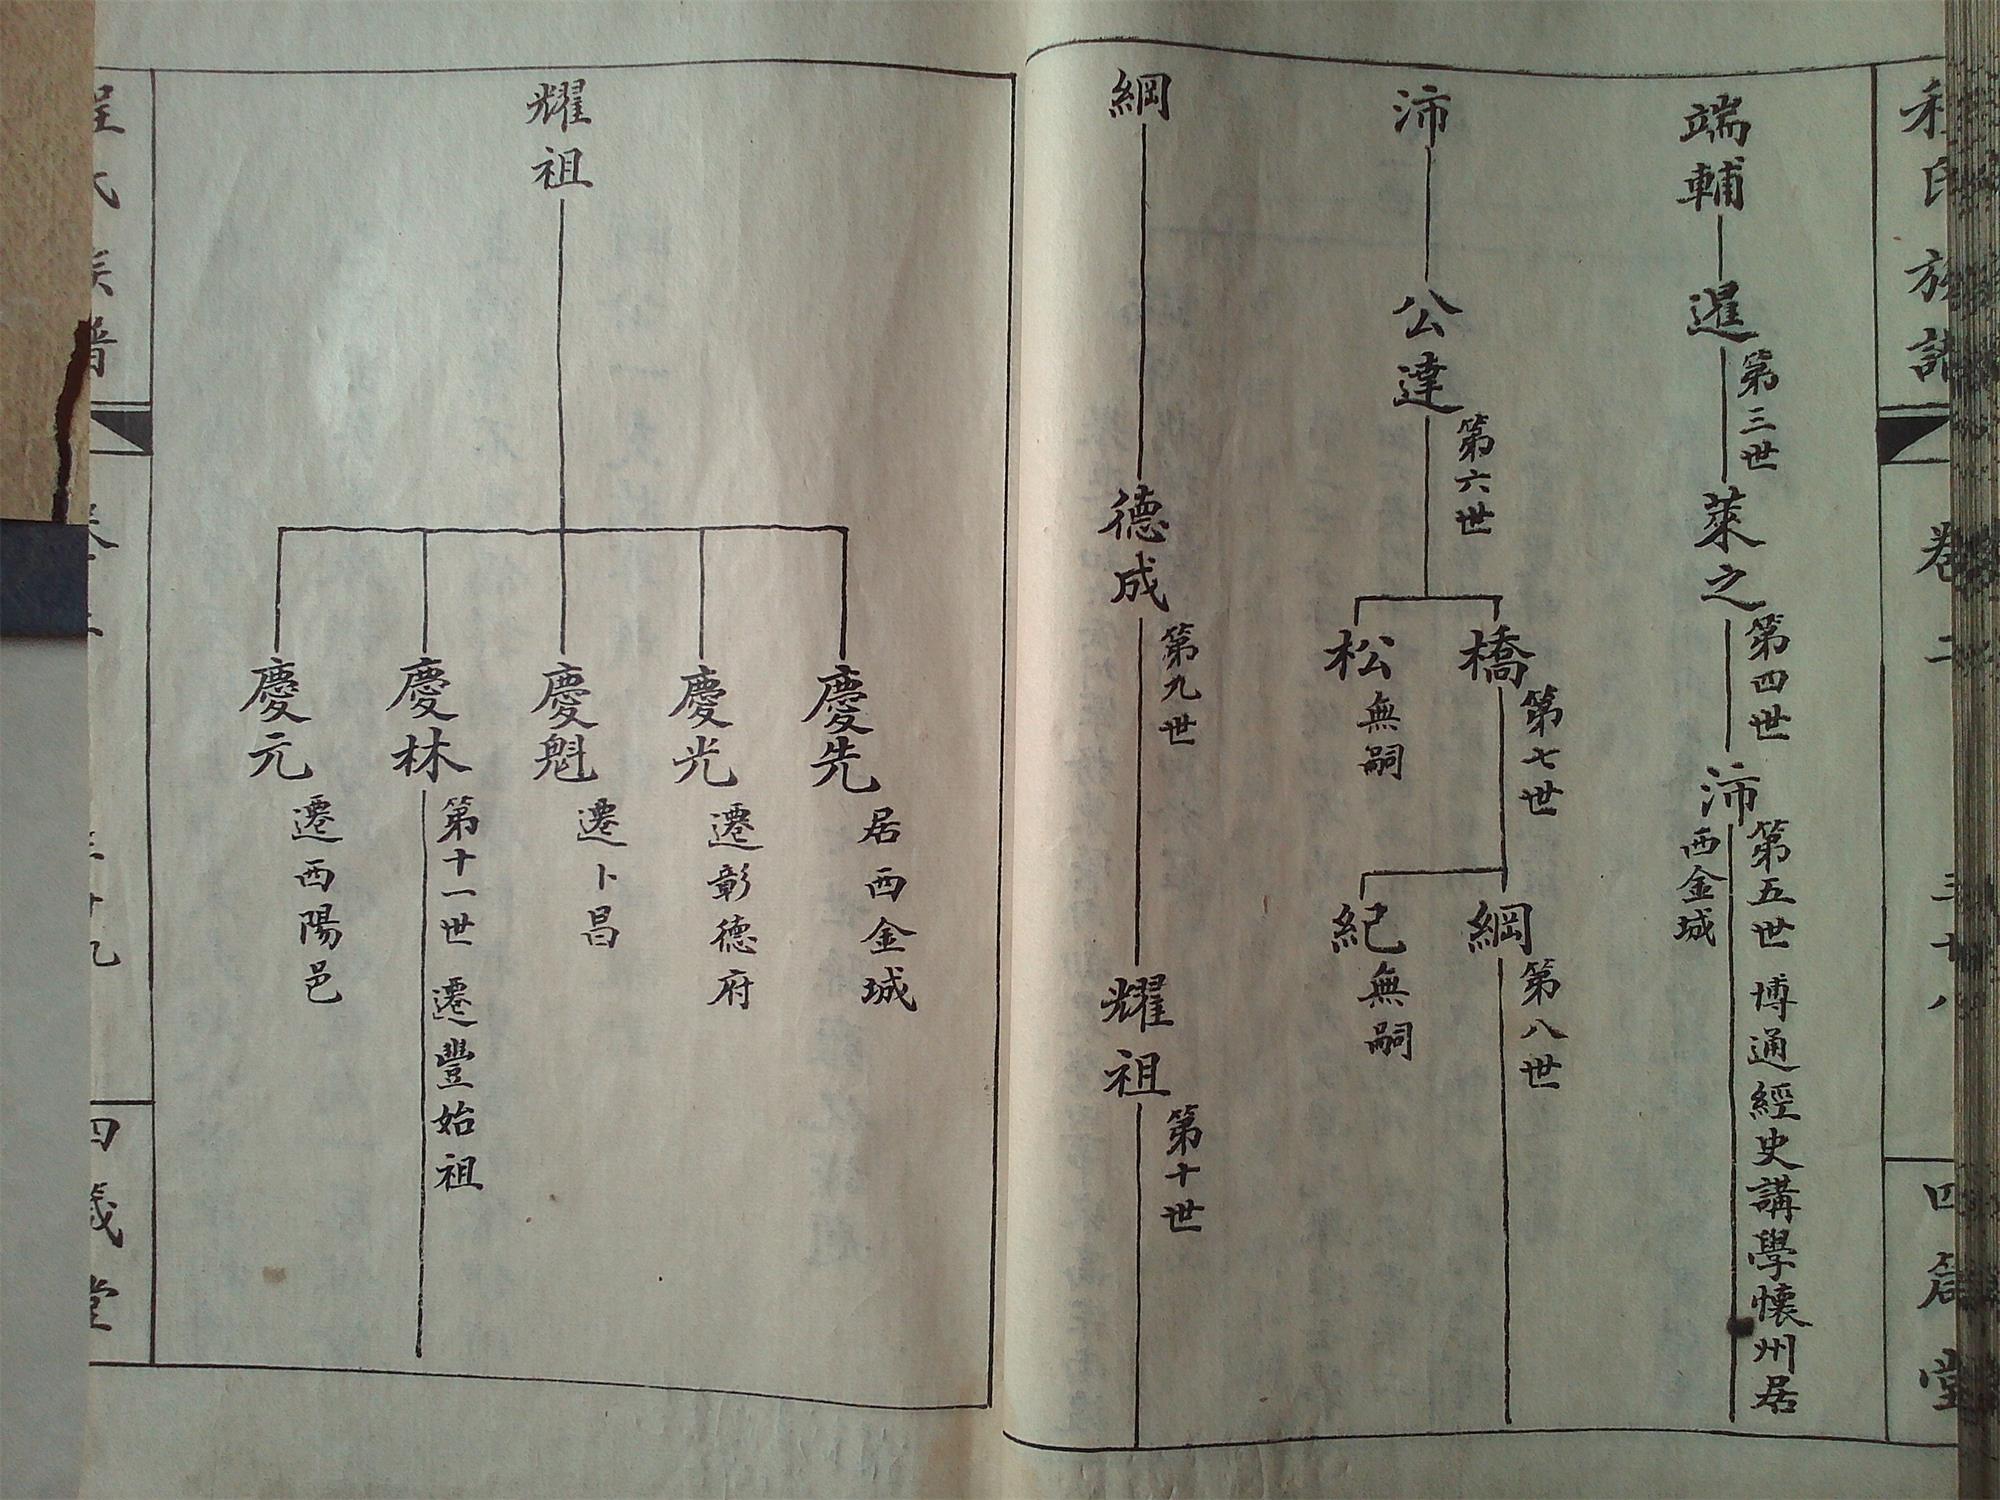 程氏族譜
卷二
三十八
四箴堂
端輔
暹
第三世
萊之
第四世
沛
第五世 博通經史講學懷州居
西金城
沛
公達
第六世
橋
第七世
松
無嗣
綱
第八世
紀
無嗣
綱
德成
第九世
耀祖
第十世
耀祖
慶先
居西金城
慶光
遷彰德府
慶魁
遷卜昌
慶林
第十一世 遷豐始祖
慶元
遷西陽邑
程氏族譜
卷二
三十九
四箴堂